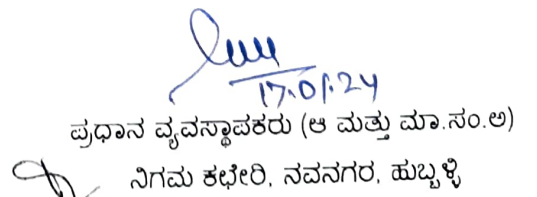 17.01.24
ಪ್ರಧಾನ ವ್ಯವಸ್ಥಾಪಕರು (ಆ ಮತ್ತು ಮಾ.ಸಂ.ಅ)
ನಿಗಮ ಕಛೇರಿ, ನವನಗರ, ಹುಬ್ಬಳ್ಳಿ